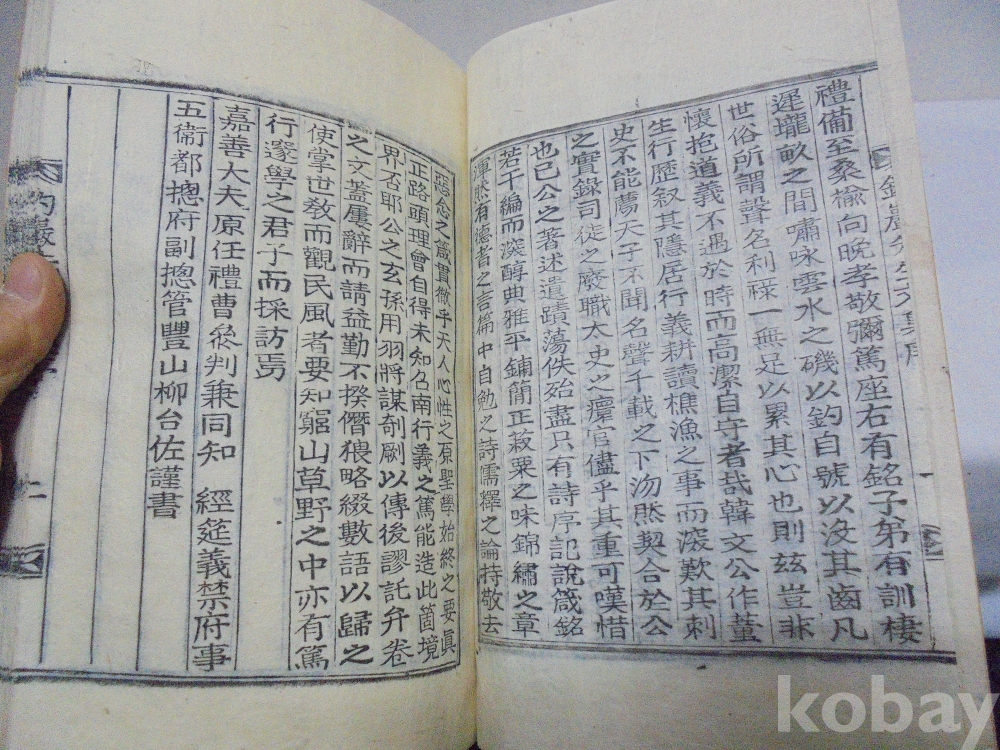 禮備至桑榆向晚孝敬彌篤座右有銘子弟有訓棲
遲壠畝之間嘯咏雲水之磯以釣自號以沒其齒凡
世俗所謂聲名利祿一無足以累其心也則玆豈非
懷抱道義不遇於時而高潔自守者哉韓文公作董
生行歷叙其隱居行義耕讀樵漁之事而深歎其刺
史不能薦天子不聞名聲千載之下沕然契合於公
之實錄司徒之廢職太史之癏官儘乎其重可嘆惜
也已公之著述遺蹟蕩佚殆盡只有詩序記說箴銘
若干編而深醇典雅平鋪簡正菽粟之味錦繡之章
渾然有德者之言篇中自勉之詩儒釋之論持敬去
惡念之箴貫徹乎天人心性之原聖學始終之要眞
正路頭理會自得未知名南行義之篤能造此箇境
界否耶公之玄孫用羽將謀剞劂以傳後謬託弁卷
之文盖屢辭而請益勤不揆僭猥略綴數語以歸之
使掌世敎而觀民風者要知窮山草野之中亦有篤
行邃學之君子而採訪焉
嘉善大夫原任禮曹叅判兼同知 經筵義禁府事
五衛都摠府副摠管豐山柳台佐謹書
kobay